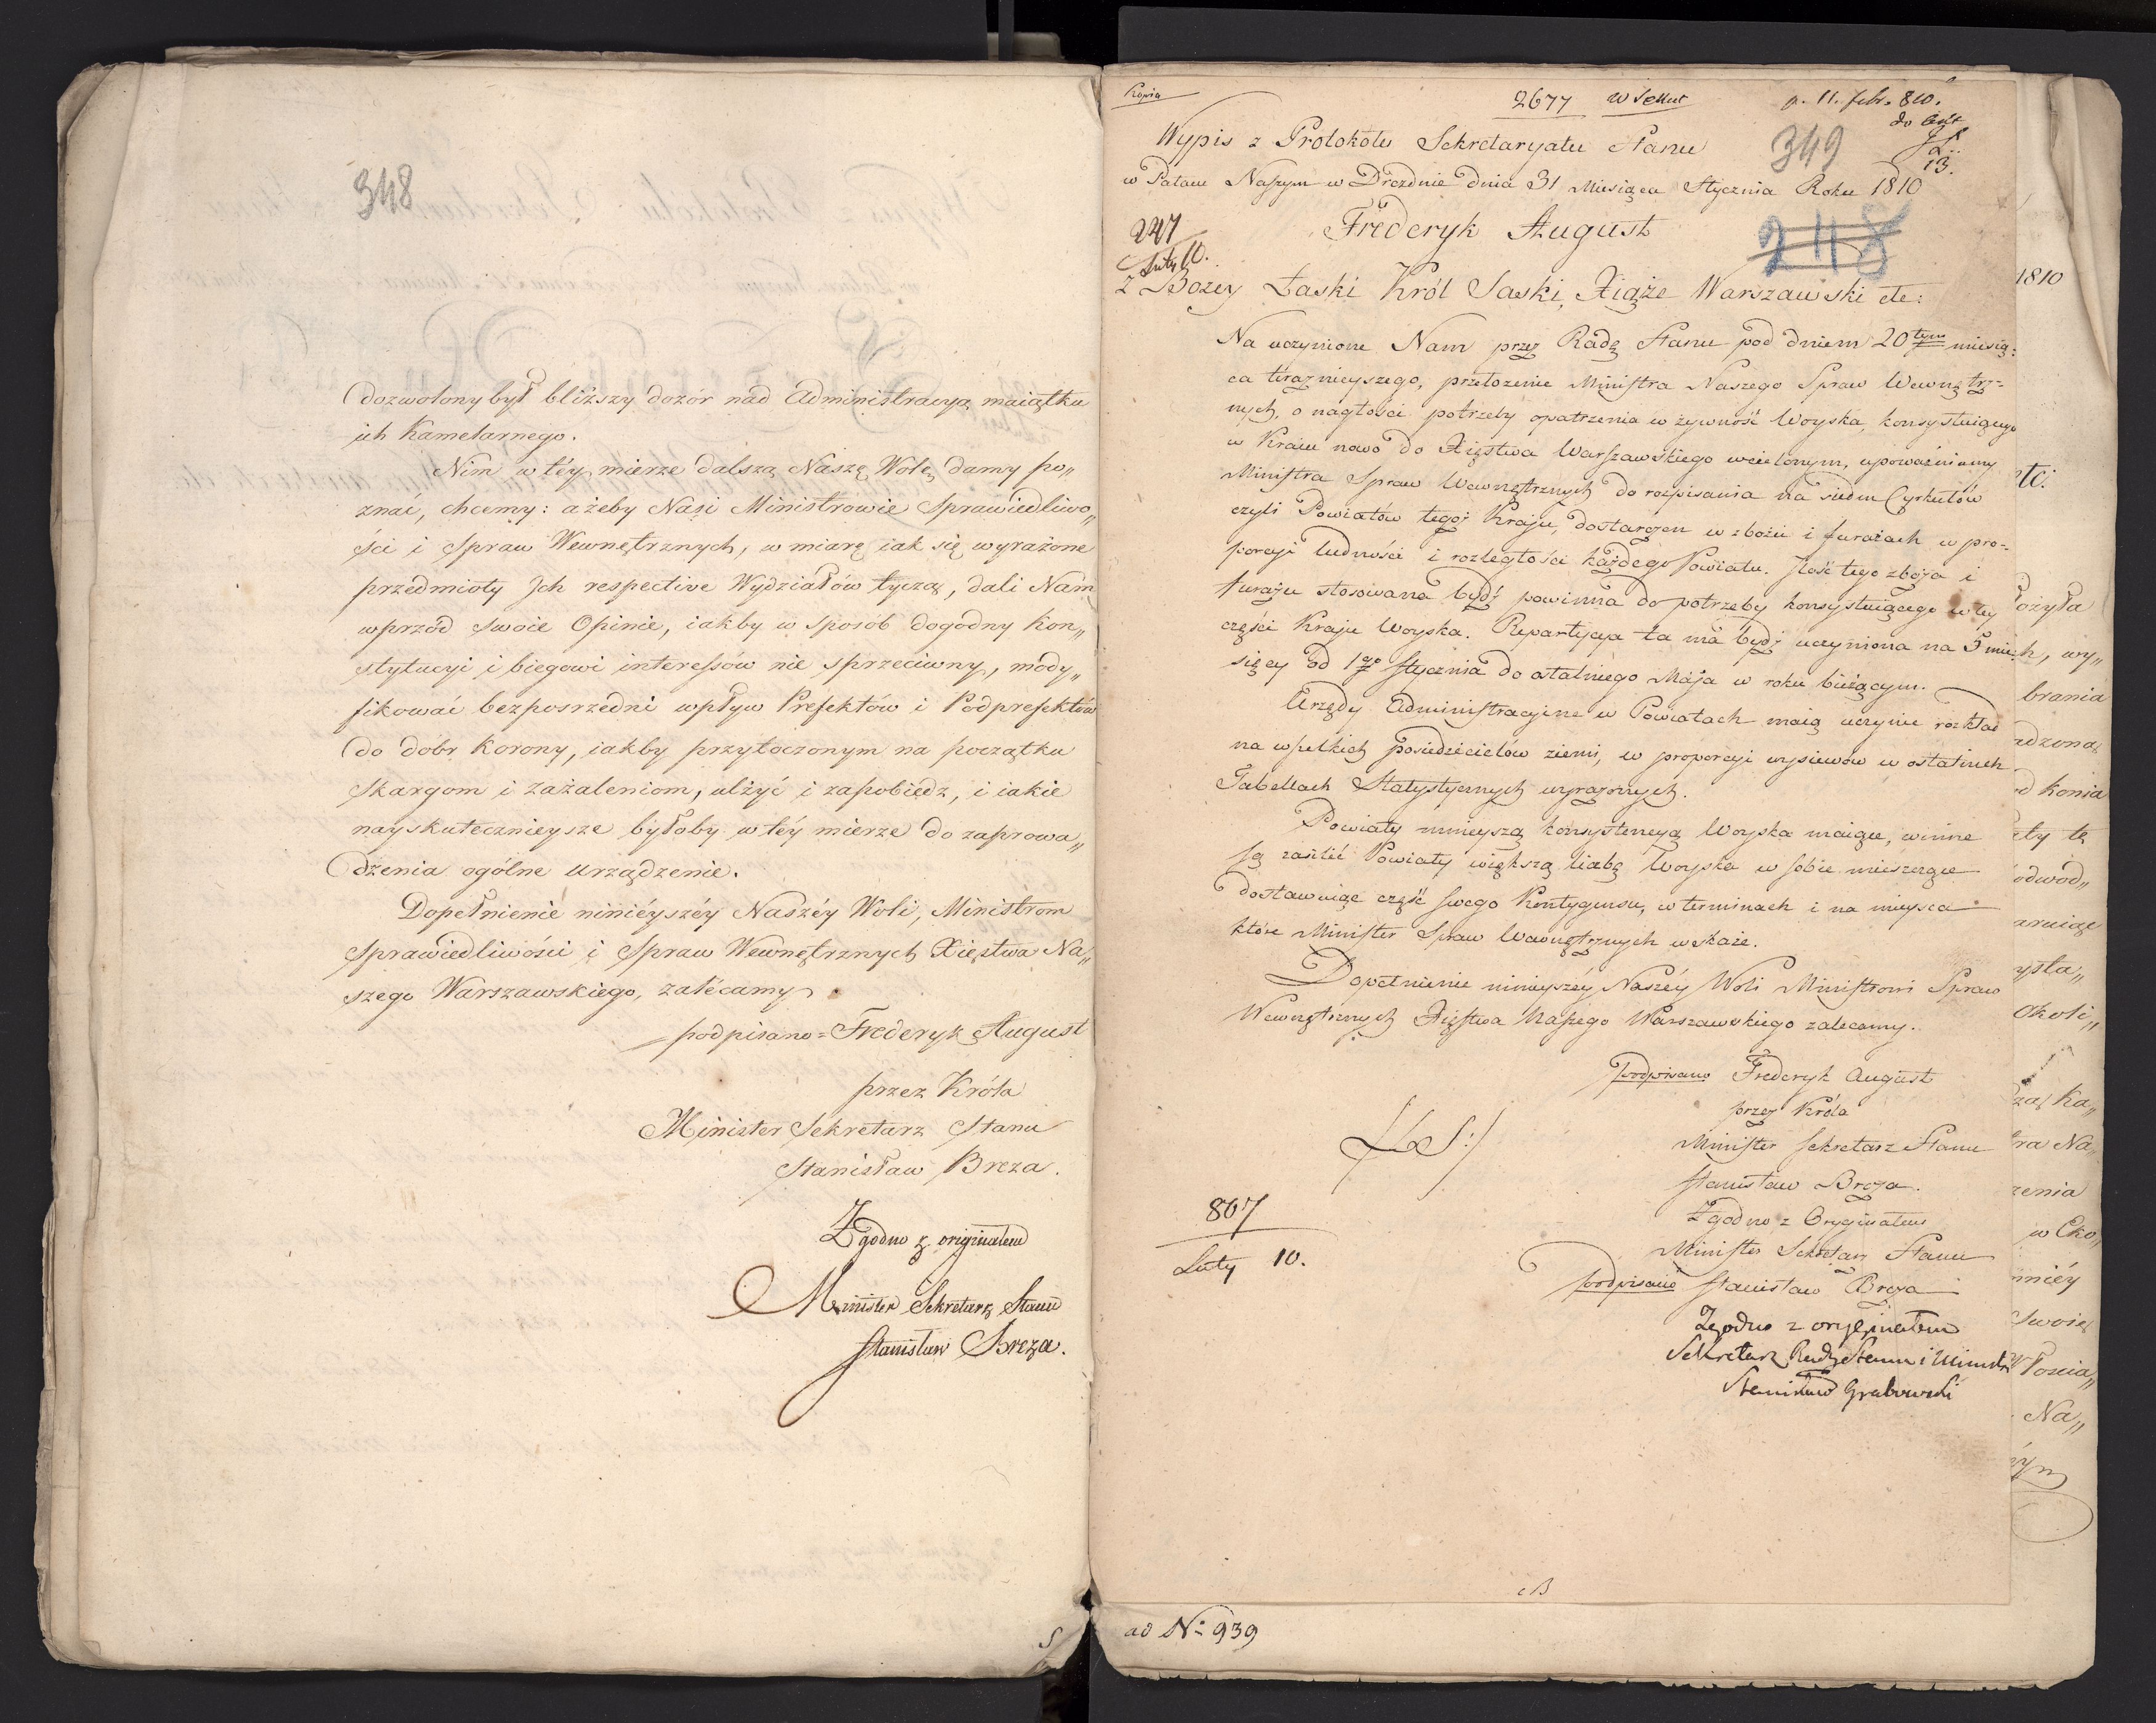 348
dozwolony był bliższy dozór nad Administracyą maiątku
ich Kameralnego.
Nim w téy mierze dalszą Naszę Wolę damy po„
znać, chcemy: ażeby Nasi Ministrowie Sprawiedliwo„
ści i Spraw Wewnętrznych, w miarę iak się wyrażone
przedmioty Ich respective Wydziałów tyczą, dali Nam
wprzód swoie Opinie, iakby w sposób dogodny Kon„
stytucyi i biegowi interessów nie sprzeciwny, mody„
fikować bezpośrzedni wpływ Prefektów i Podprefektów
do dóbr Korony, iakby przytoczonym na początku
skargom i zażaleniom, ulżyć i zapobiedz, i iakie
nayskutecznieysze byłoby w téy mierze do zaprowa„
dzenia ogólne urządzenie.
Dopełnienie ninieyszéy Naszéy Woli, Ministrom
Sprawiedliwości i Spraw Wewnętrznych Xięstwa Na„
szego Warszawskiego, zalécamy
podpisano = Frederyk August
przez Króla
Minister Sekretarz Stanu
Stanisław Breza.
Zgodno z originałem
Minister Sekretarz Stanu
Stanisław Breza.
Kopia
2677 w Sekret p. 11. febr. 810.
do
13.
Wypis z Protokółu Sekretaryatu Stanu
349
w Pałacu Naszym w Dreznie dnia 31 Miesiąca Stycznia Roku 1810
247
Luty 10.
Frederyk August
248
z Bożey Łaski Król Saski, Xiąże Warszawski etc:
Na uczynione Nam przez Radę Stanu pod dniem 20tym miesią:
ca teraznieyszego, przełożenie Ministra Naszego Spraw Wewnętrz=
nych, o nagłości potrzeby opatrzenia w żywność Woyska, konsystuiącego
w Kraiu nowo do Xięstwa Warszawskiego wcielonym, upoważniamy
Ministra Spraw Wewnętrznych do rozpisania na siedm Cyrkułów
czyli Powiatów tegoż Kraju, dostarczen w zbożu i furażach w pro-
porcyi ludności i rozległości każdego Powiatu. Ilość tego zboża i
furażu stosowana bydź powinna do potrzeby konsystuiącego w tey
części Kraju Woyska. Repartycya ta ma bydź uczyniona na 5 mie
sięcy od 1go Stycznia do ostatniego Maja w roku bieżącym.
Urzędy Administracyine w Powiatach maią uczynić rozkład
na wszelkich posiedzicielów ziemi, w proporcyi wysiewów w ostatnich
Tabellach Statystycznych wyrażonych.
Powiaty mnieyszą konsystencyą Woyska maiące, winne
są zasilić Powiaty większą liczbę Woyska w sobie mieszczące
dostawuiąc część swego Kontygensu, w terminach i na mieysca
które Minister Spraw Wewnętrznych wskaże.
Dopełnienie ninieyszéy Naszéy Woli Ministrowi Spraw
Wewnętrznych Xięstwa Naszego Warszawskiego zalecamy.
podpisano Frederyk August
przez Króla
/L.S:/
Minister Sekretarz Stanu
Stanisław Breza.
867
Luty 10.
Zgodno z Oryginałem
Minister Sekretarz Stanu
podpisano Stanisław Breza
Zgodno z oryginałem
Sekretarz Rady Stanu i Ministr
Stanisław Grabowski
ad No 939
1810
etc:
ożyła
h, wy„
brania
adzona
d konia
ty te
odwod„
aruiąc
ysta„
Okoli„
zaś Ka„
ra Na
zenia
w Eko
mniéy
Swoię
Włoscia„
Na„
ym